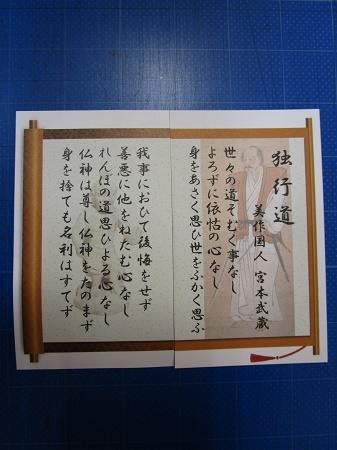 独行道
美作国人 宮本武蔵
世々の道そむく事なし
よろずに依怙の心なし
身をあさく思ひ世をふかく思ふ
我事におひて後悔をせず
善悪に他をねたむ心なし
れんぼの道思ひよる心なし
仏神は尊し仏神をたのまず
身を捨ても名利はすてず